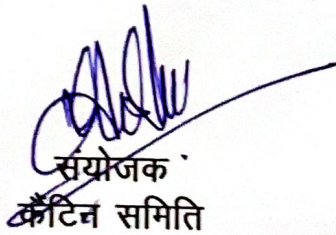 संयोजक
कैंटिन समिति